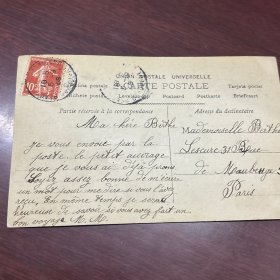 UNION POSTALE UNIVERSELLE
CARTE POSTALE
Tarjeta postal
Levelező-Lap Postcard Postkarte Briefkaart
Partie réservée à la correspondance
Adresse du destinataire
10
Ma chère Berthe
je vous envoie par la
poste, le petit ouvrage
que je vous ai déjà promis
Soyez assez bonne de m'écrire
un mot pour me dire si vous l'avez
reçu, En même temps je serai
heureuse de savoir si vous avez fait un
bon voyage M. M.
Mademoiselle Berthe
Lescure 31 Rue
de Maubeuge
Paris